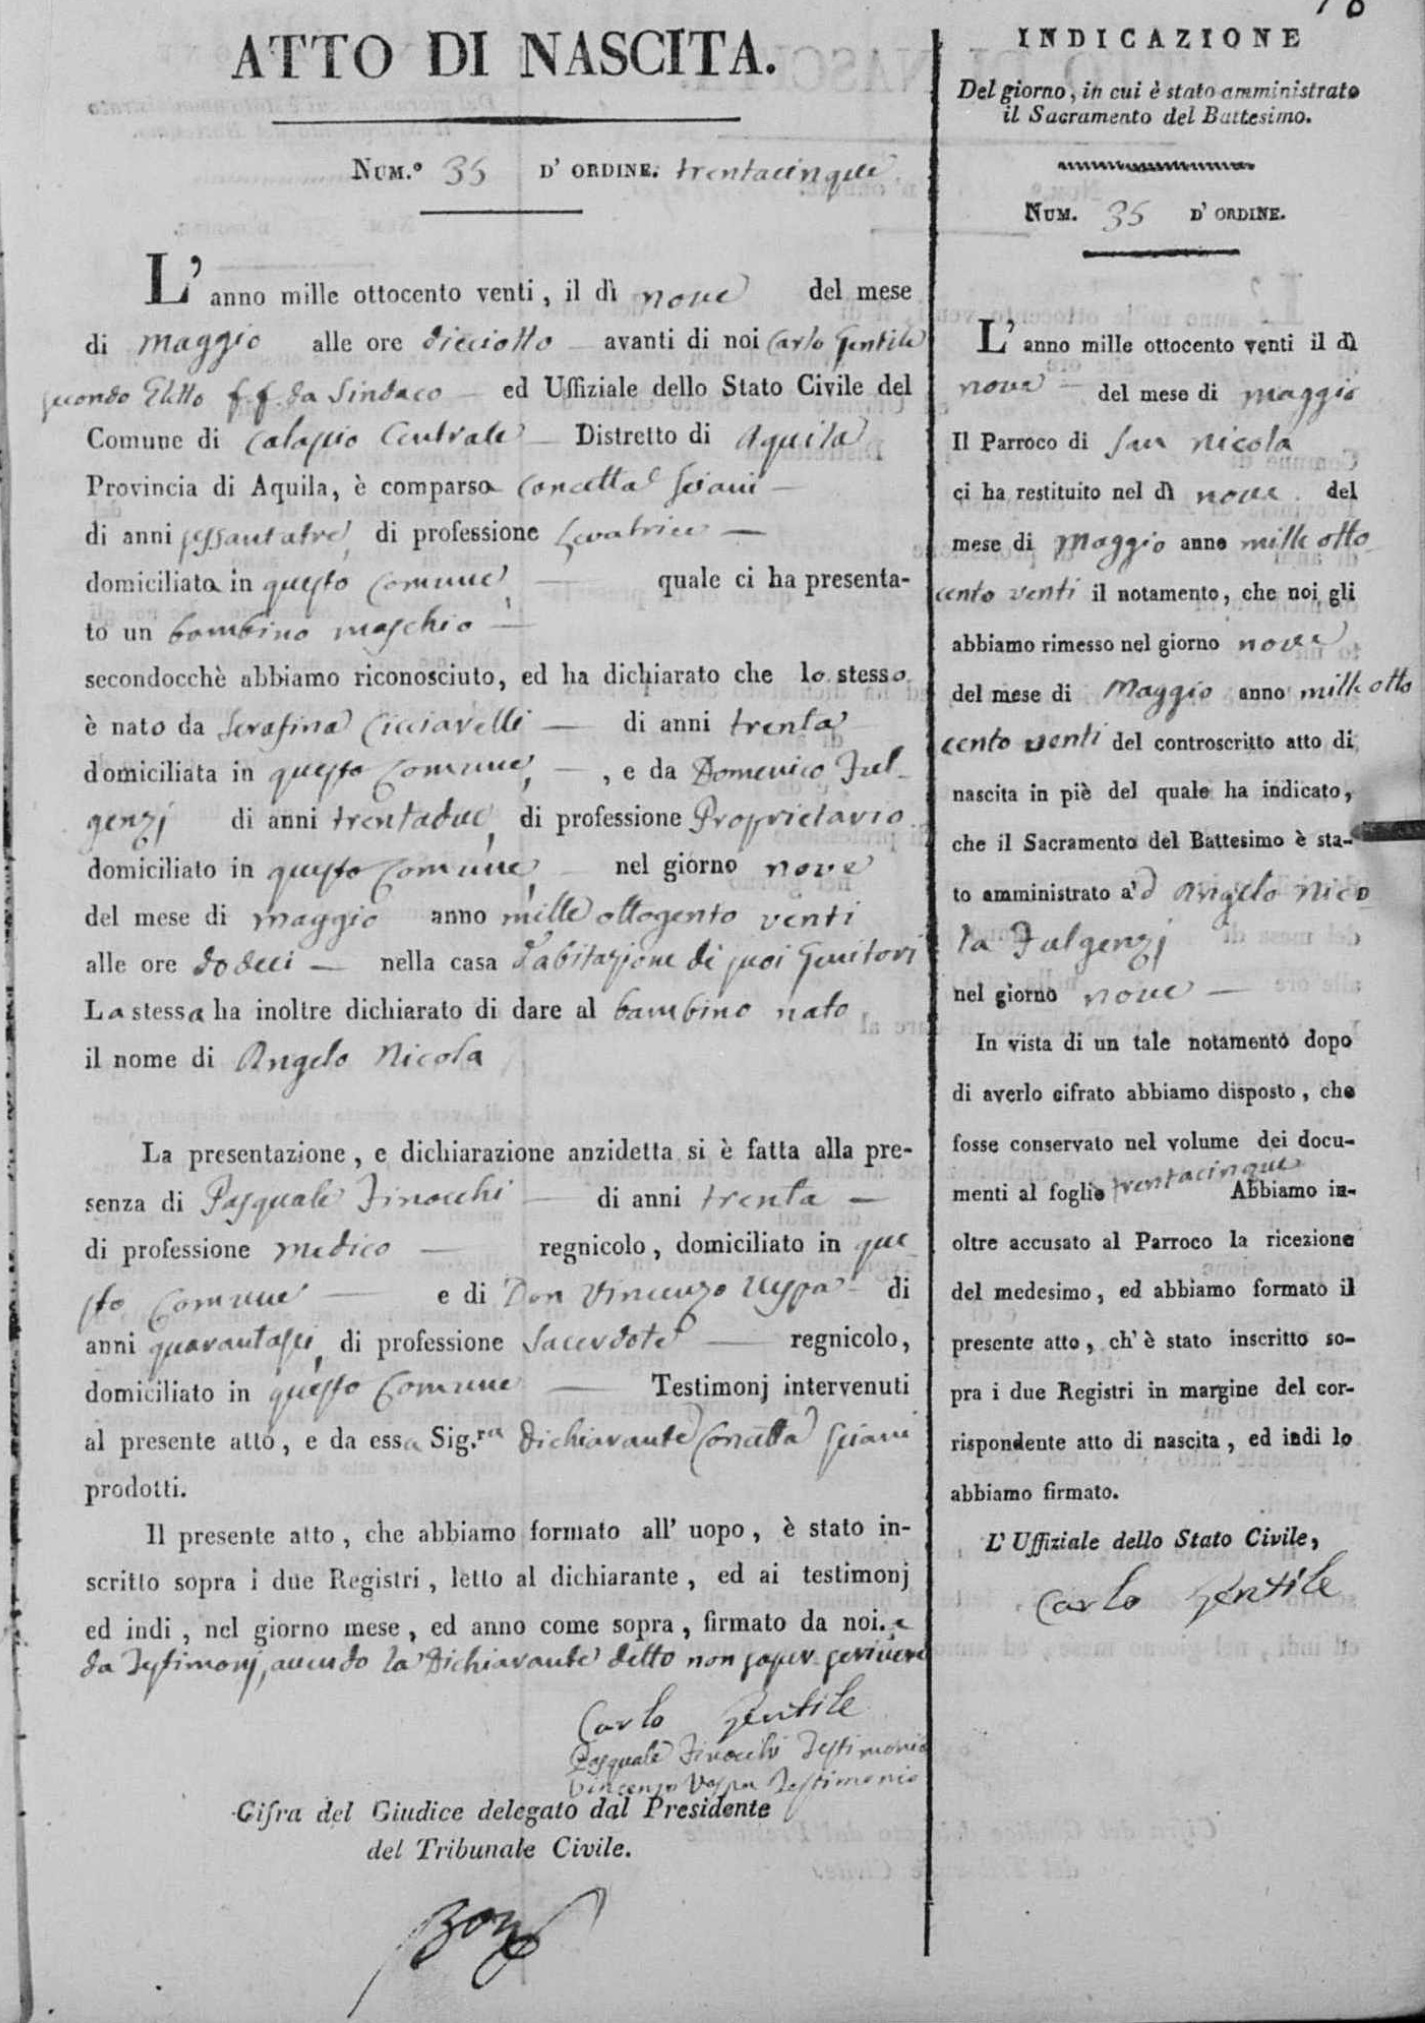 ATTO DI NASCITA.
NUM.° 35 D' ORDINE. trentacinque
L' anno mille ottocento venti, il dì nove del mese
di maggio alle ore dieciotto avanti di noi Carlo Gentile
secondo Eletto f.f. da Sindaco ed Uffiziale dello Stato Civile del
Comune di Calascio Centrale Distretto di Aquila
Provincia di Aquila, è comparsa Concetta Sciani
di anni sessantatre, di professione Levatrice
domiciliata in questo Comune, quale ci ha presenta-
to un bambino maschio
secondocchè abbiamo riconosciuto, ed ha dichiarato che lo stesso
è nato da Serafina Cicciavelli di anni trenta
domiciliata in questo Comune, , e da Domenico Ful-
genzj di anni trentadue, di professione Proprietario
domiciliato in questo Comune, nel giorno nove
del mese di maggio anno mille ottogento venti
alle ore dodeci nella casa d'abitazione di suoi Genitori
La stessa ha inoltre dichiarato di dare al bambino nato
il nome di Angelo Nicola
La presentazione, e dichiarazione anzidetta si è fatta alla pre-
senza di Pasquale Finocchi di anni trenta
di professione medico regnicolo, domiciliato in que
sto Comune e di Don Vincenzo Vespa di
anni quarantasei, di professione Sacerdote regnicolo,
domiciliato in questo Comune Testimonj intervenuti
al presente atto, e da essa Sig.ra dichiarante Concetta Sciani
prodotti.
Il presente atto, che abbiamo formato all' uopo, è stato in-
scritto sopra i due Registri, letto al dichiarante, ed ai testimonj
ed indi, nel giorno mese, ed anno come sopra, firmato da noi. e
da Testimonj, avendo la Dichiarante detto non saper scrivere
Carlo Gentile
Pasquale Finocchi Testimonio
Vincenzo Vespa Testimonio
Cifra del Giudice delegato dal Presidente
del Tribunale Civile.
INDICAZIONE
Del giorno, in cui è stato amministrato
il Sacramento del Battesimo.
NUM. 35 D' ORDINE.
L' anno mille ottocento venti il dì
nove del mese di maggio
Il Parroco di San Nicola
ci ha restituito nel dì nove del
mese di Maggio anno mille otto
cento venti il notamento, che noi gli
abbiamo rimesso nel giorno nove
del mese di Maggio anno mille otto
cento venti del controscritto atto di
nascita in piè del quale ha indicato,
che il Sacramento del Battesimo è sta-
to amministrato a'd Angelo Nico
la Fulgenzj
nel giorno nove
In vista di un tale notamento dopo
di averlo cifrato abbiamo disposto, che
fosse conservato nel volume dei docu-
menti al foglio trentacinque Abbiamo in-
oltre accusato al Parroco la ricezione
del medesimo, ed abbiamo formato il
presente atto, ch' è stato inscritto so-
pra i due Registri in margine del cor-
rispondente atto di nascita, ed indi lo
abbiamo firmato.
L' Uffiziale dello Stato Civile,
Carlo Gentile